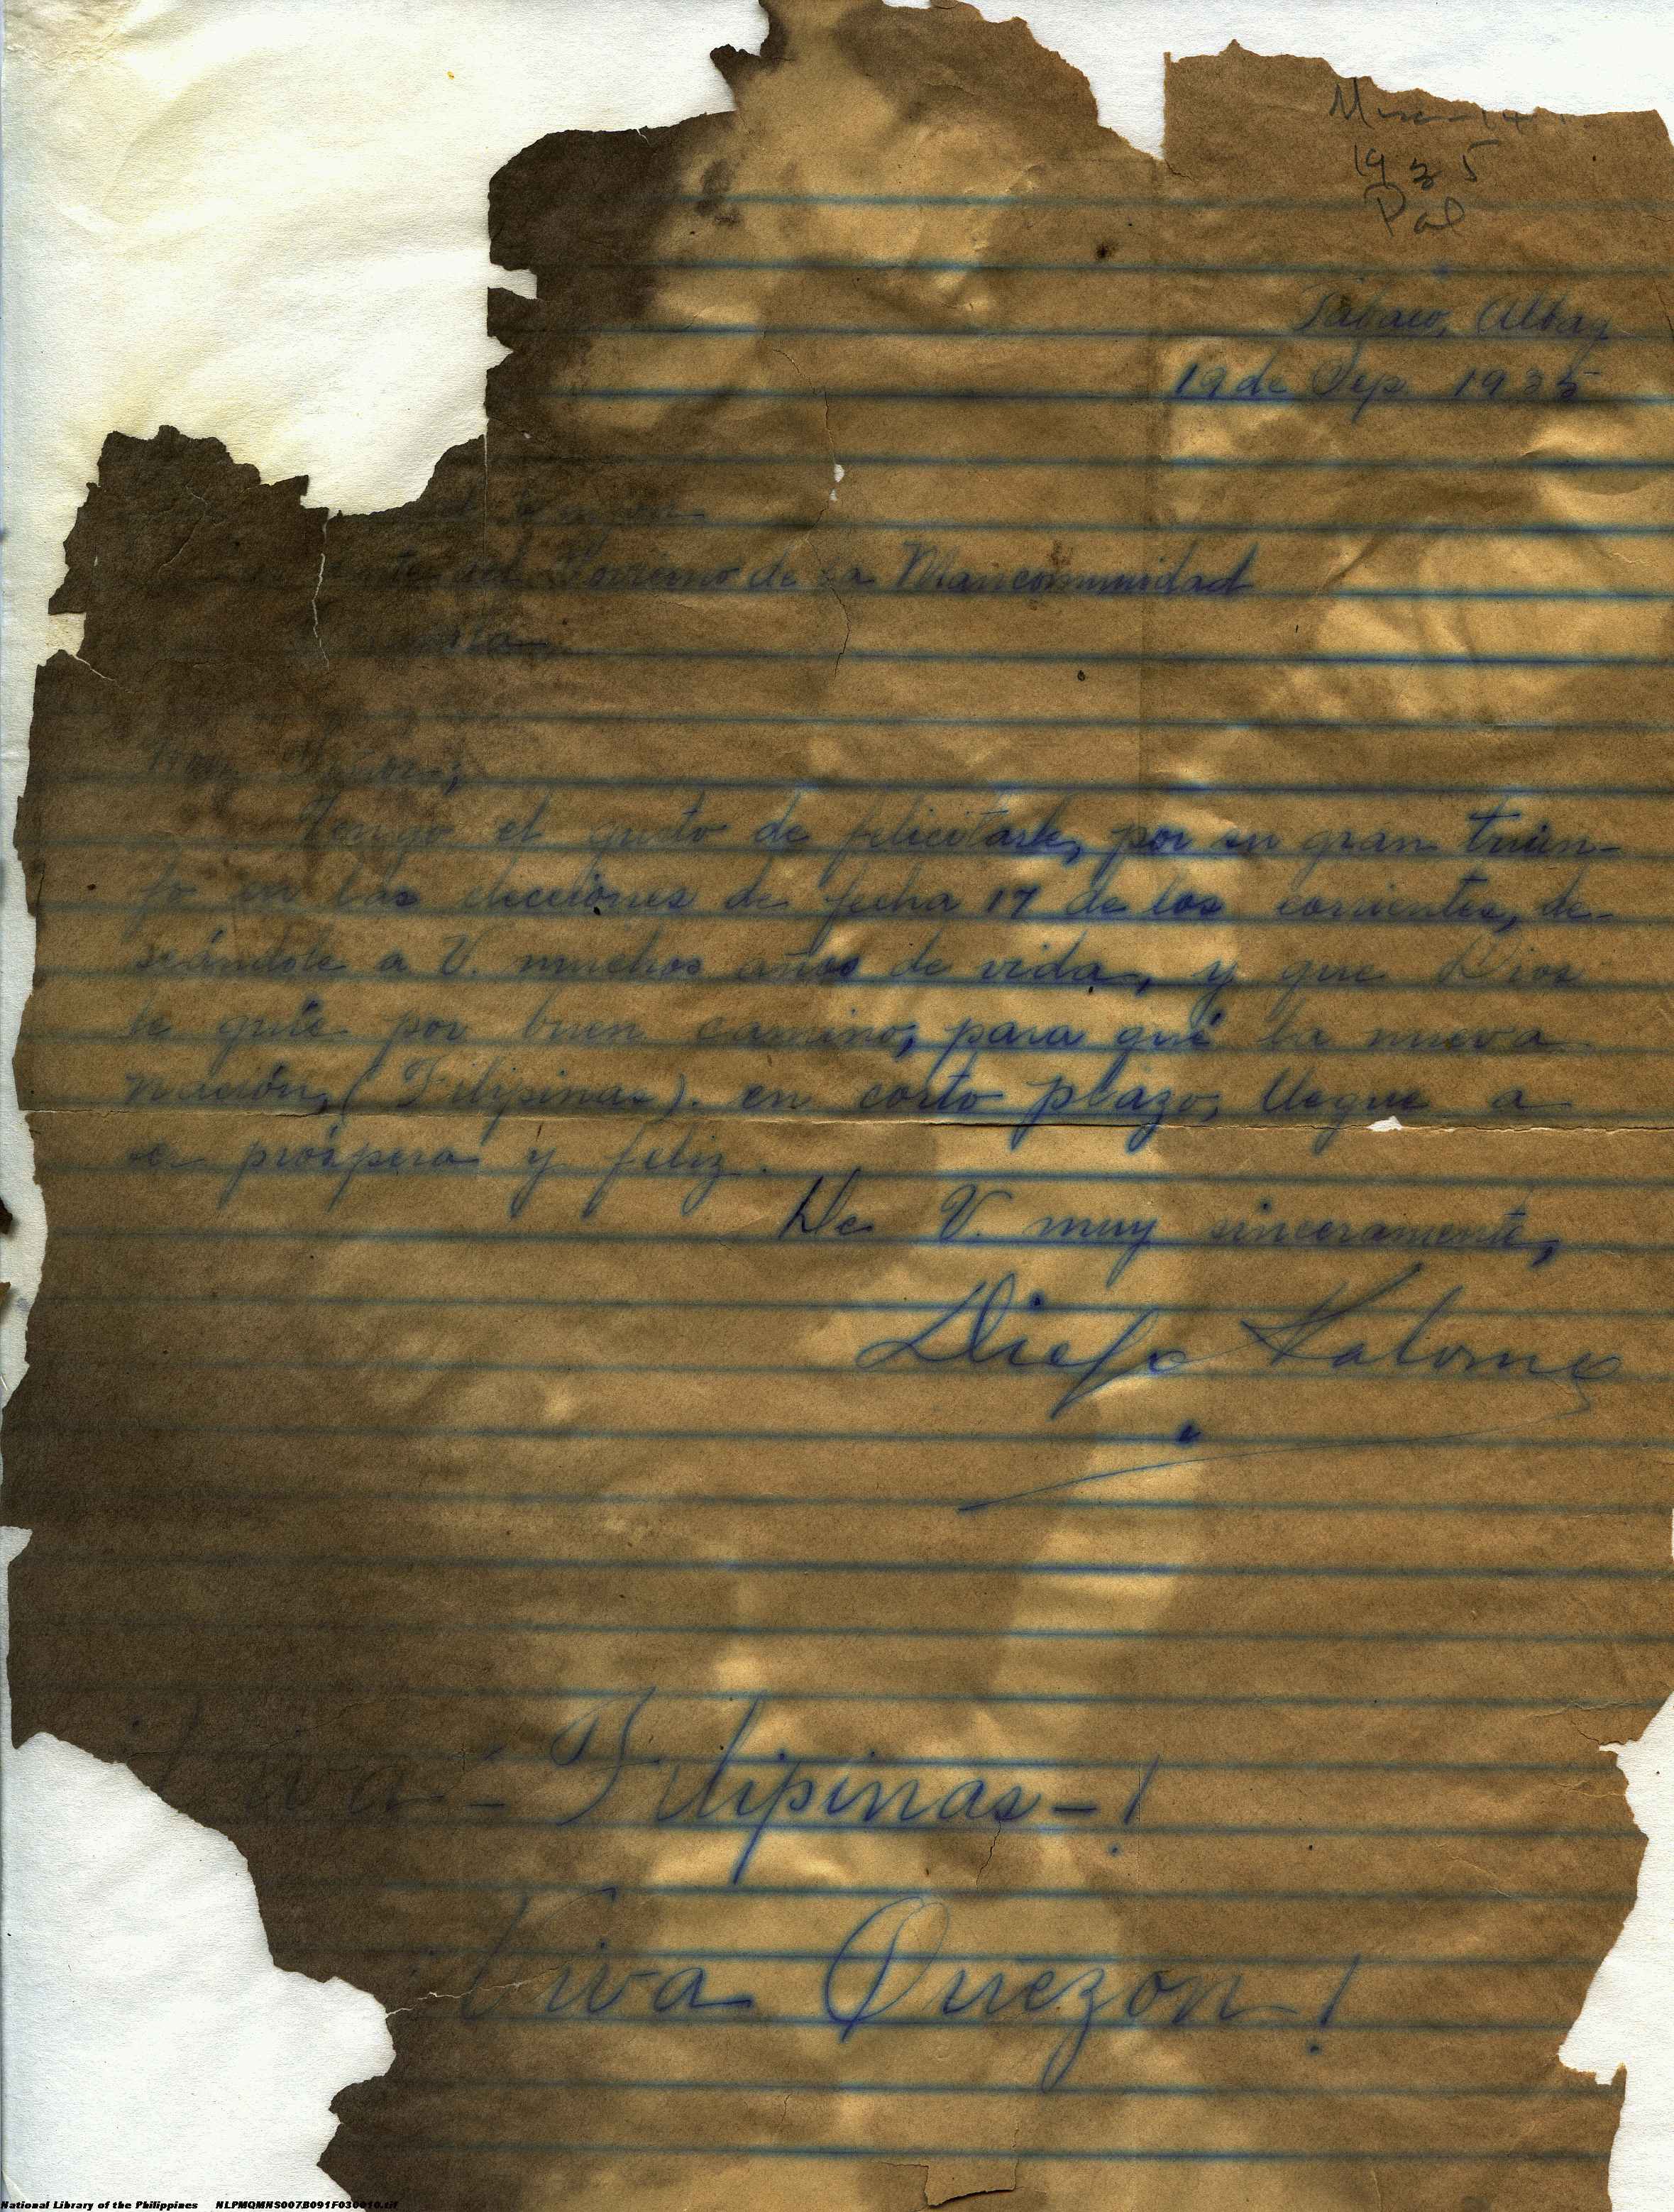 1935
Pal
Tabaco, Albay
19 de Sep. 1935
Gobierno de la Mancomunidad
Tengo el gusto de felicitarle, por su gran triun-
fo en las elecciones de fecha 17 de los corrientes, de-
seándole a V. muchos años de vida, y que Dios
le guie por buen camino, para qué la nueva
nación, (Filipinas). en corto plazo, llegue a
ser próspera y feliz.
De V. muy sinceramente,
Diego
Viva - Filipinas - !
¡Viva Quezon - !
National Library of the Philippines